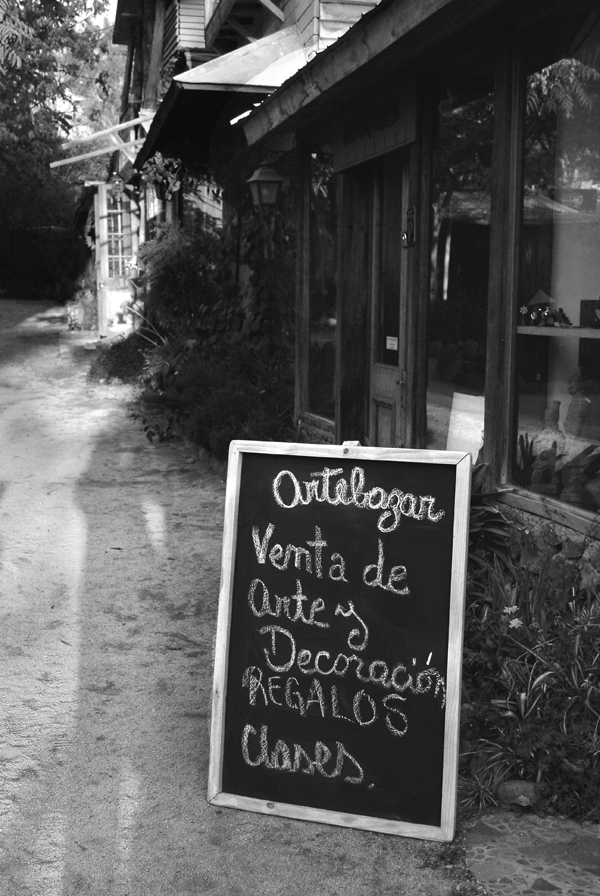 Artebazar
Venta de
Arte y
Decoración
REGALOS
Clases.